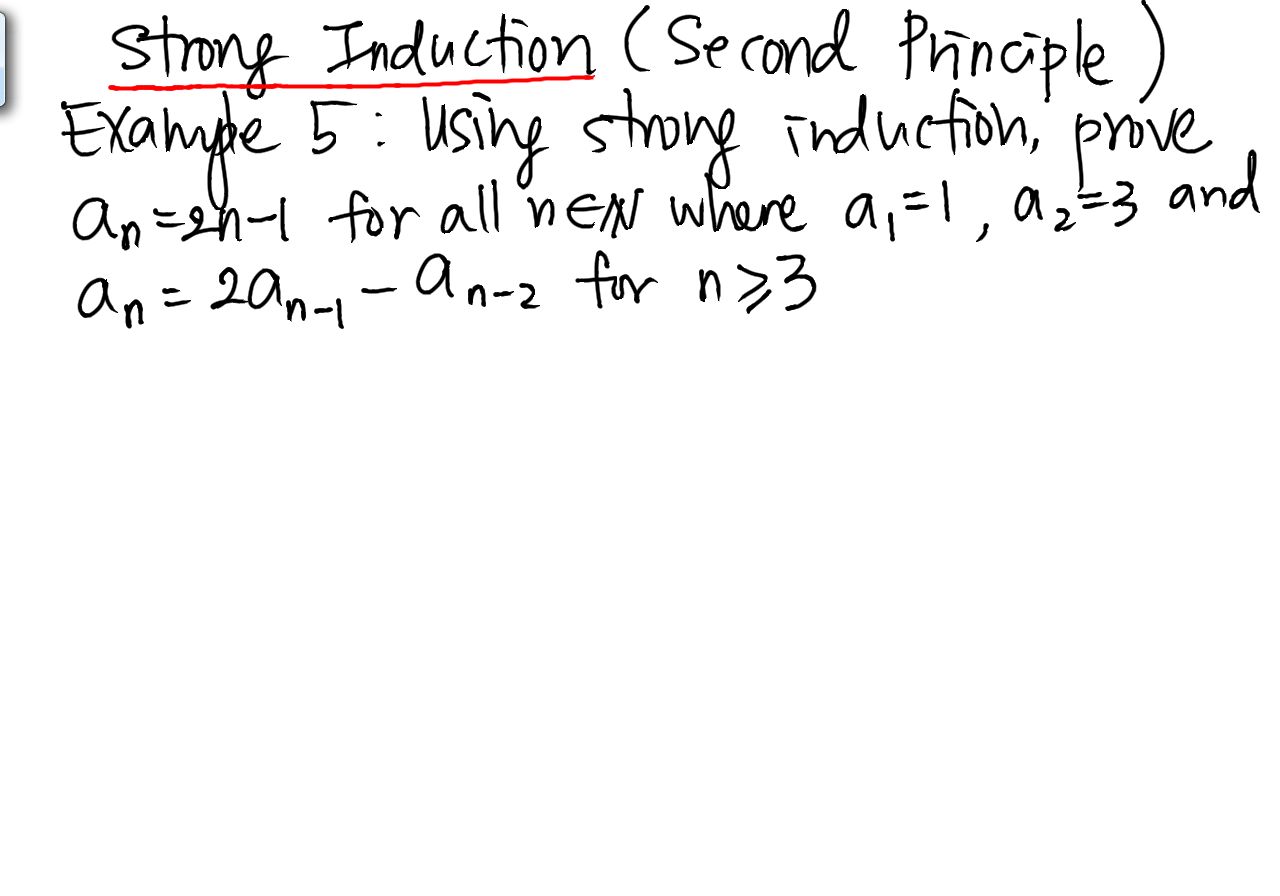 Strong Induction (Second Principle)
Example 5: Using strong induction, prove
aₙ=2n-1 for all n∈ℕ where a₁=1, a₂=3 and
aₙ = 2aₙ₋₁ - aₙ₋₂ for n⩾3